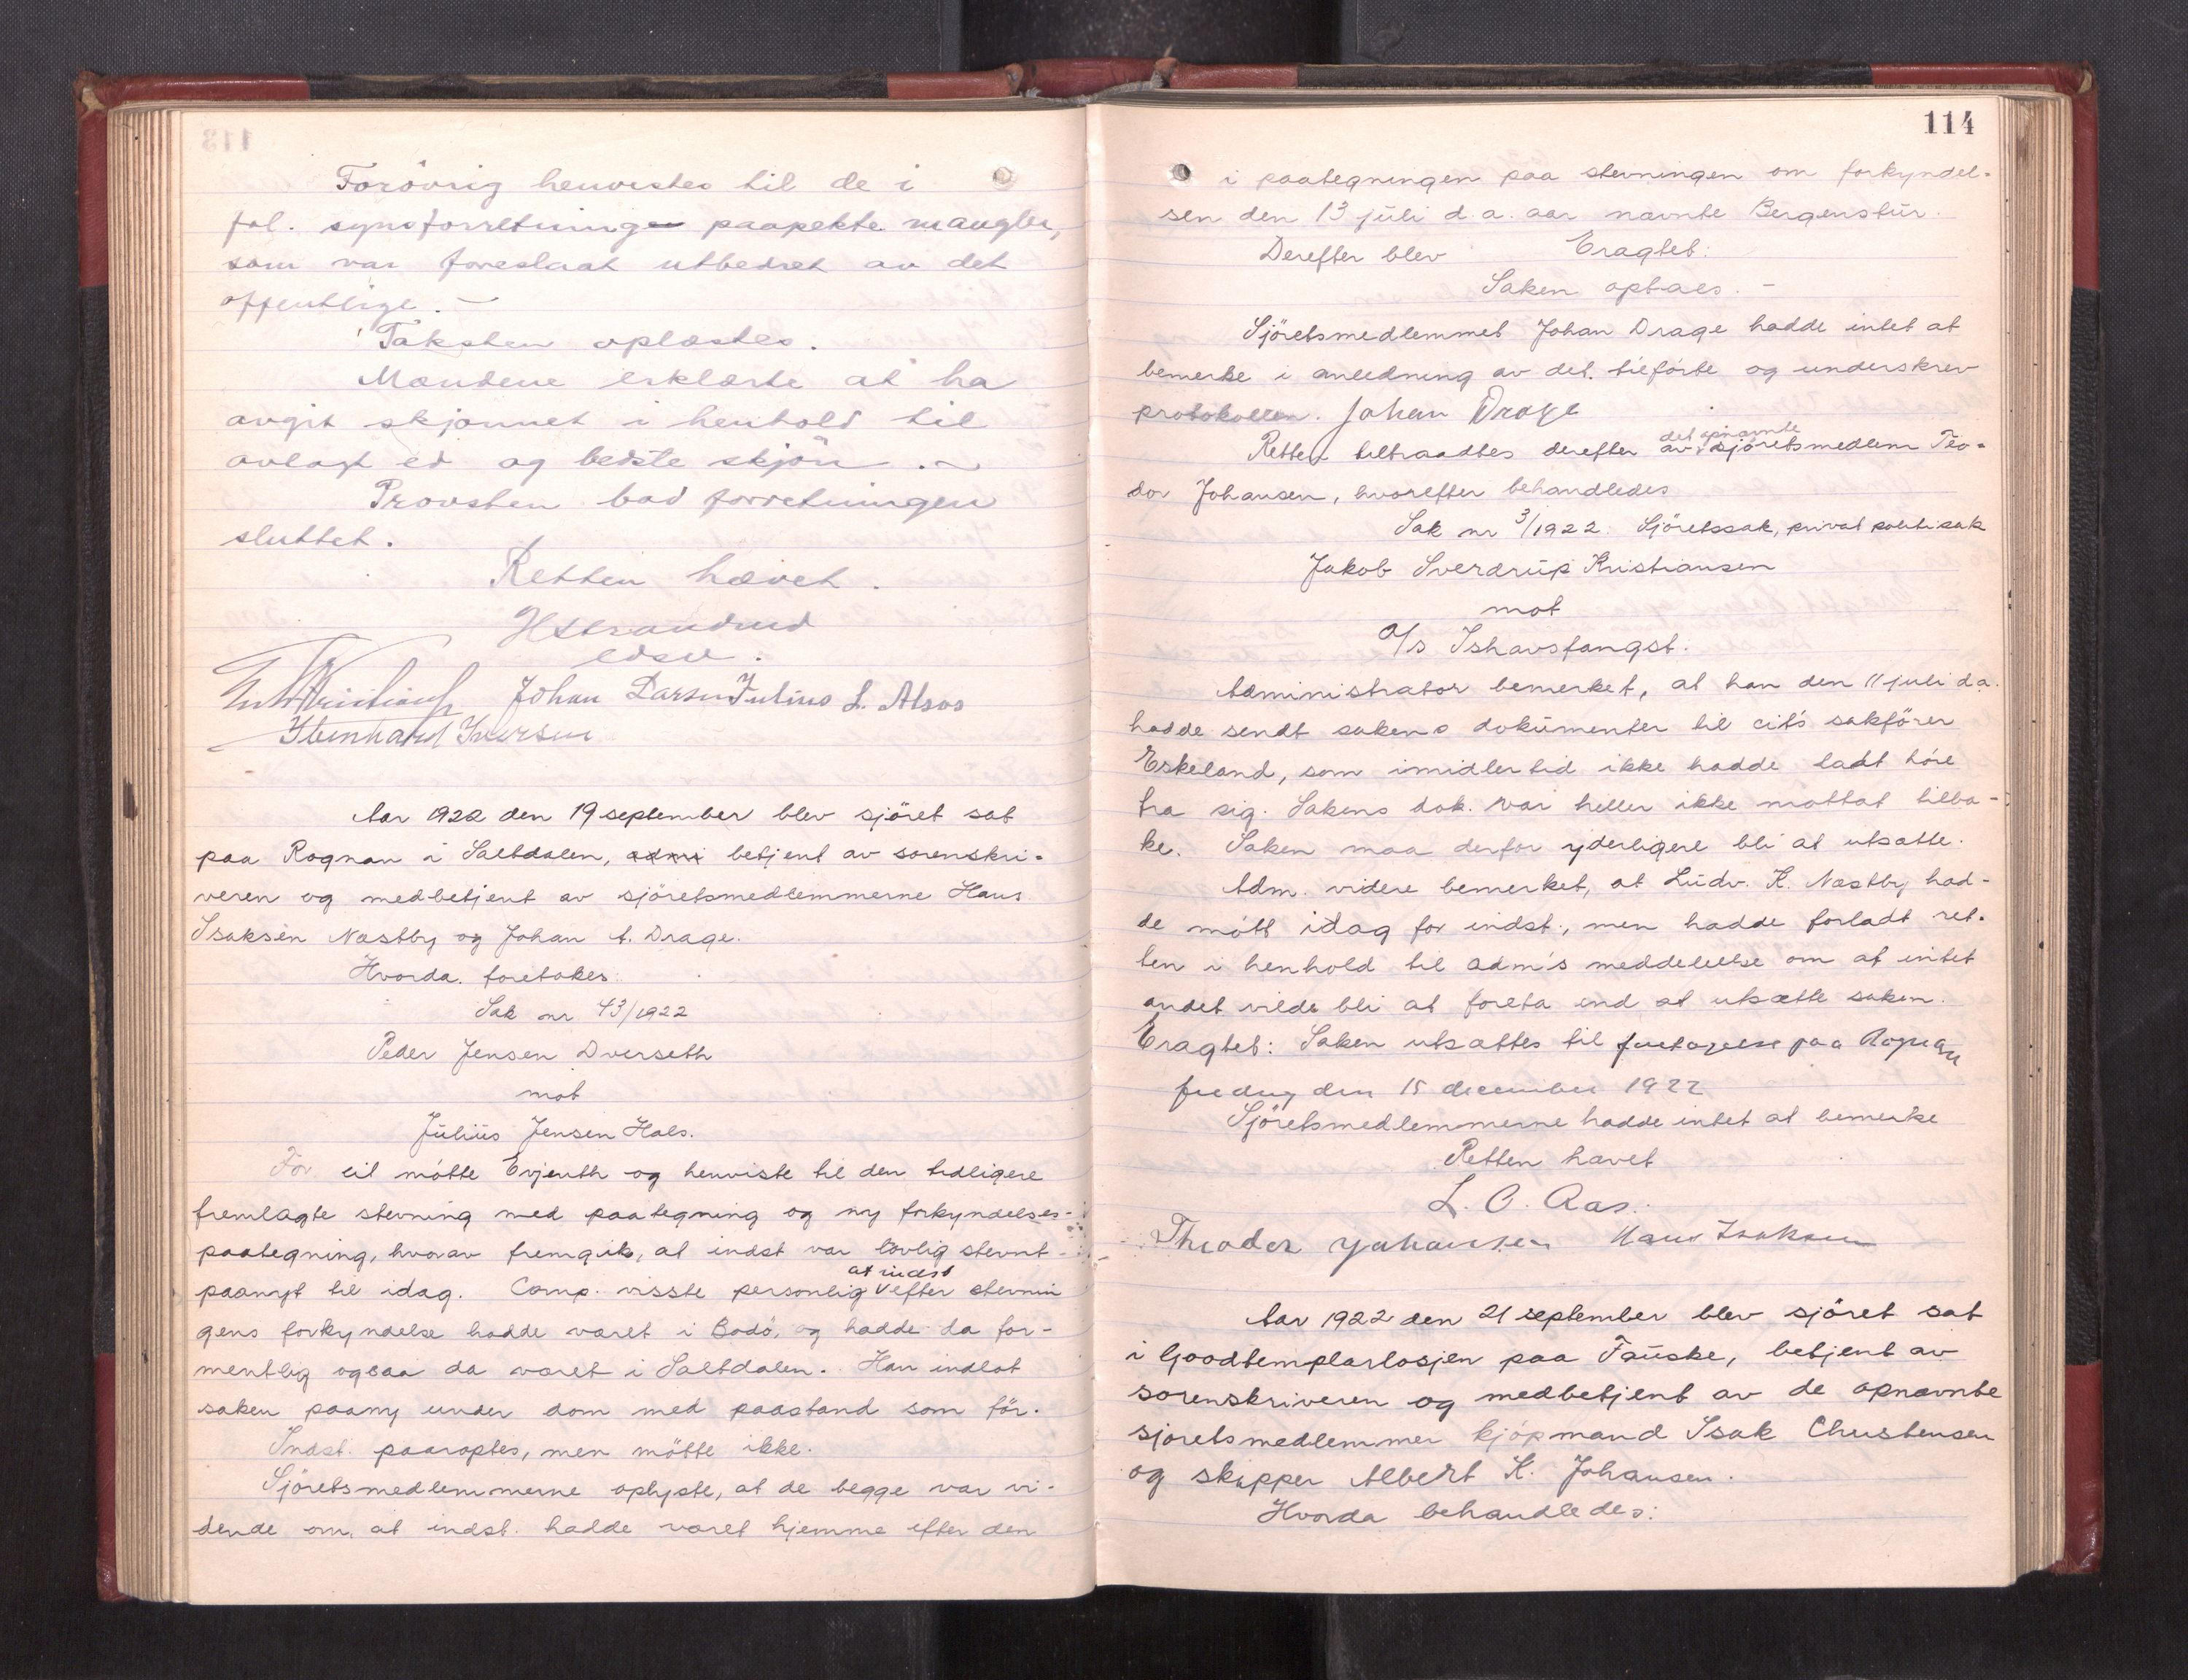 Forövrig henvistes til de i
fol. synsforretningen paapekte mangler,
som var foreslaat utbedret av det
offentlige. —
Taksten oplæstes.
Mændene erklærte at ha
avgit skjønnet i henhold til
avlagt ed og bedste skjön. —
Provsten bad forretningen
sluttet.
Retten hævet.
HStrandrud
edsv.
Johan Larsen Julius L. Alsos
Iversen
Aar 1922 den 19 september blev sjöret sat
paa Rognan i Saltdalen, admi betjent av sorenskri-
veren og medbetjent av sjöretsmedlemmerne Hans
Isaksen Næstby og Johan A. Drage.
Hvorda foretokes:
Sak nr 43/1922
Peder Jensen Dverseth
mot
Julius Jensen Hals.
For cit mötte Evjenth og henviste til den tidligere
fremlagte stevning med paategning og ny forkyndelses-
paategning, hvorav fremgik, at indst var lovlig stevnt
paanyt til idag. Comp. visste personlig at indst efter stevnin
gens forkyndelse hadde været i Bodö, og hadde da for-
mentlig ogsaa da været i Saltdalen. Han indlot
saken paany under dom med paastand som för.
Indst. paaroptes, men mötte ikke.
Sjöretsmedlemmerne oplyste, at de begge var vi-
dende om, at indst. hadde været hjemme efter den
114
i paategningen paa stevningen om forkyndel-
sen den 13 juli d.a. aar nævnte Bergenstur.
Derefter blev Eragtet:
Saken optaes. —
Sjöretsmedlemmet Johan Drage hadde intet at
bemerke i anledning av det tilförte og underskrev
protokollen. Johan Drage
Retten tiltraadtes derefter av det opnævnte sjöretsmedlem Teo-
dor Johansen, hvorefter behandledes
Sak nr 3/1922 Sjöretssak, privat politisak
Jakob Sverdrup Kristiansen
mot
A/s Ishavsfangst.
Administrator bemerket, at han den 11 juli d.a.
hadde sendt sakens dokumenter til cit's sakförer
Eskeland, som imidlertid ikke hadde ladt höre
fra sig. Sakens dok. var heller ikke mottat tilba-
ke. Saken maa derfor yderligere bli at utsætte.
Adm. videre bemerket, at Ludv. K. Næstby had-
de mött idag for indst., men hadde forladt ret-
ten i henhold til adm's meddelelse om at intet
andet vilde bli at foreta end at utsætte saken.
Eragtet: Saken utsættes til foretagelse paa Rognan
fredag den 15 december 1922
Sjöretsmedlemmerne hadde intet at bemerke
Retten hævet
L. O. Aas.
Theodor Johansen Hans Isaksen
Aar 1922 den 21 september blev sjöret sat
i Goodtemplarlosjen paa Fauske, betjent av
sorenskriveren og medbetjent av de opnævnte
sjöretsmedlemmer kjöpmand Isak Christensen
og skipper Albert K. Johansen.
Hvorda behandledes: